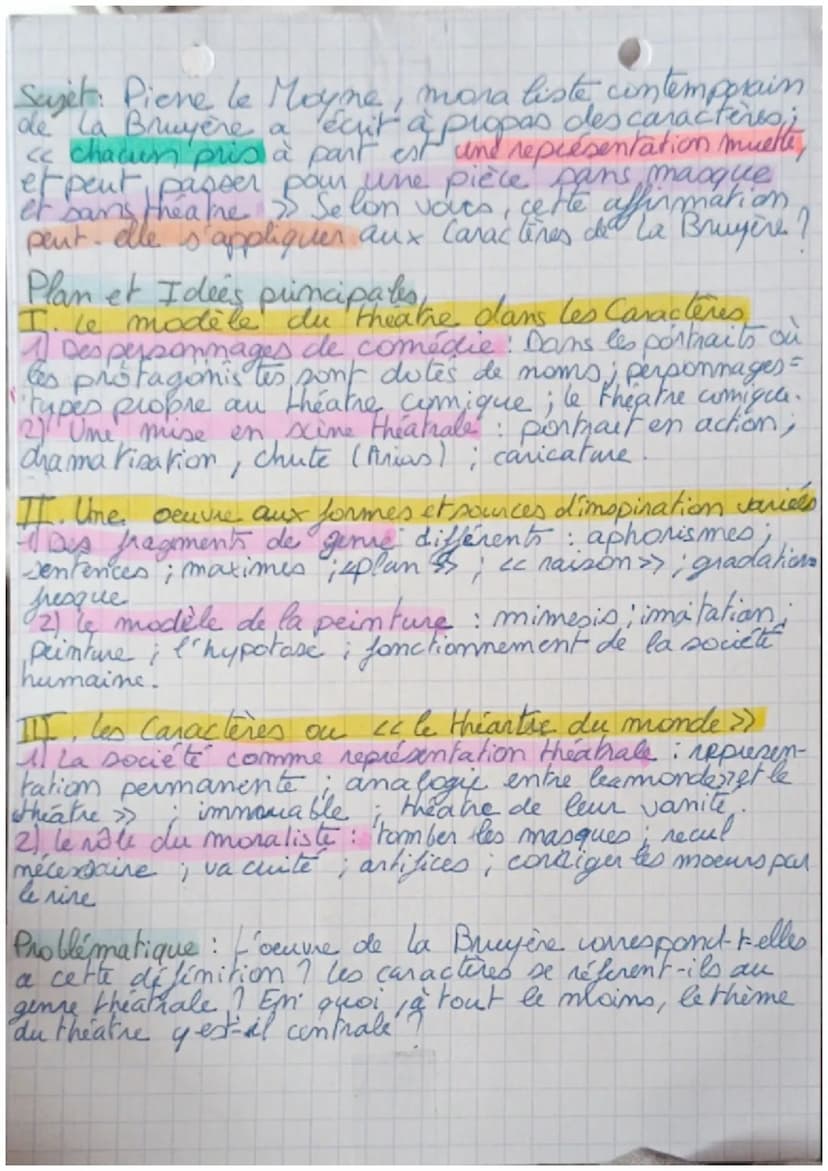 Sujet : Pierre le Moyne, moraliste contemporain
de La Bruyère a écrit à propos des caractères ;
<< chacun pris à part est une représentation muette,
et peut passer pour une pièce sans masque
et sans théatre >> Selon vous, cette affirmation
peut-elle s'appliquer aux Caractères de La Bruyère ?
Plan et Idées principales
I. Le modèle du théatre dans les Caractères
1) Des personnages de comédie : Dans les portraits où
les protagonistes sont dotés de noms ; personnages=
types propre au théatre comique ; le théatre comique.
2) Une mise en scène théatrale : portrait en action ;
dramatisation , chute (Arias) ; caricature.
II. Une oeuvre aux formes et sources d'inspiration variées
1) Des fragments de genre différents : aphorismes ;
sentences ; maximes ; <<plan >> ; << raison>> ; gradation
presque
2) le modèle de la peinture : mimesis ; imitation ;
peinture ; l'hypotaxe ; fonctionnement de la société
humaine.
III. les Caractères ou << le théantre du monde >>
1) La société comme représentation théatrale : représen-
tation permanente ; analogie entre le<<monde>>et le
théatre >> ; immuable ; théatre de leur vanité.
2) le rôle du moraliste : tomber les masques ; recul
nécessaire ; vacuité ; artifices ; corriger les moeurs par
le rire
Problématique : L'oeuvre de La Bruyère correspond-t-elles
a cette définition ? Les caractères se réferent-ils au
genre théatrale ? En quoi, à tout le moins, le thème
du théatre y est-il centrale ?